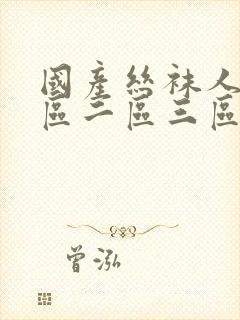 國產絲袜人
區二區三區
曾泓